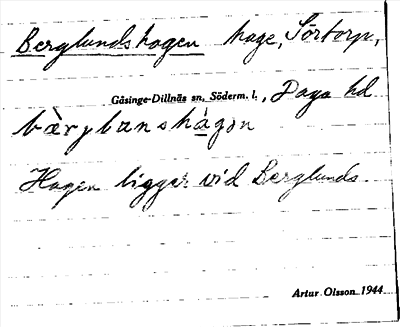 Berglundshagen hage, Sörtorp,
Gåsinge-Dillnäs sn, Söderm. l., Daga hd
bàrjlunshágen
Hagen ligger vid Berglunds.
Artur Olsson 1944